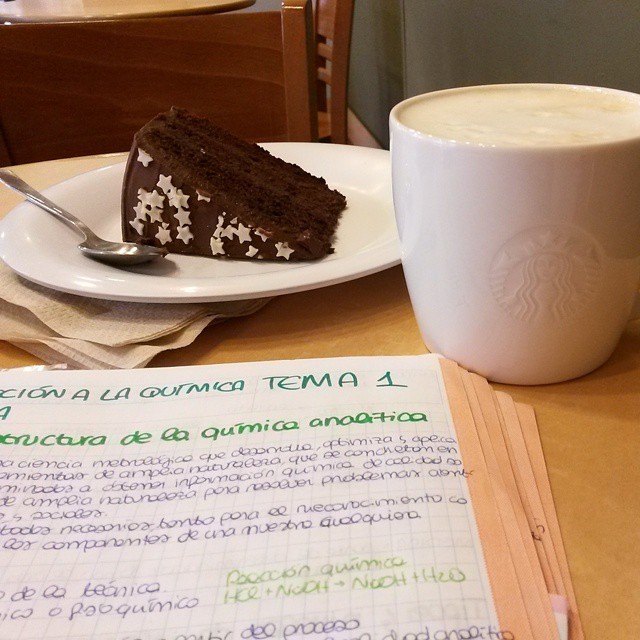 CIÓN A LA QUÍMICA TEMA 1
A
structura de la química analítica
a ciencia metrológica que desarrolla, optimiza y aplica
amientas de amplia naturaleza, que se concretan en
minados a obtener información química de calidad
de amplia naturaleza para resolver problemas
s y sociales.
todos necesarios tanto para el reconocimiento
los componentes de una muestra cualquiera.
o de la técnica
Reacción química
HCl + NaOH → NaOH + H2O
ico o psoquímico
partir del proceso